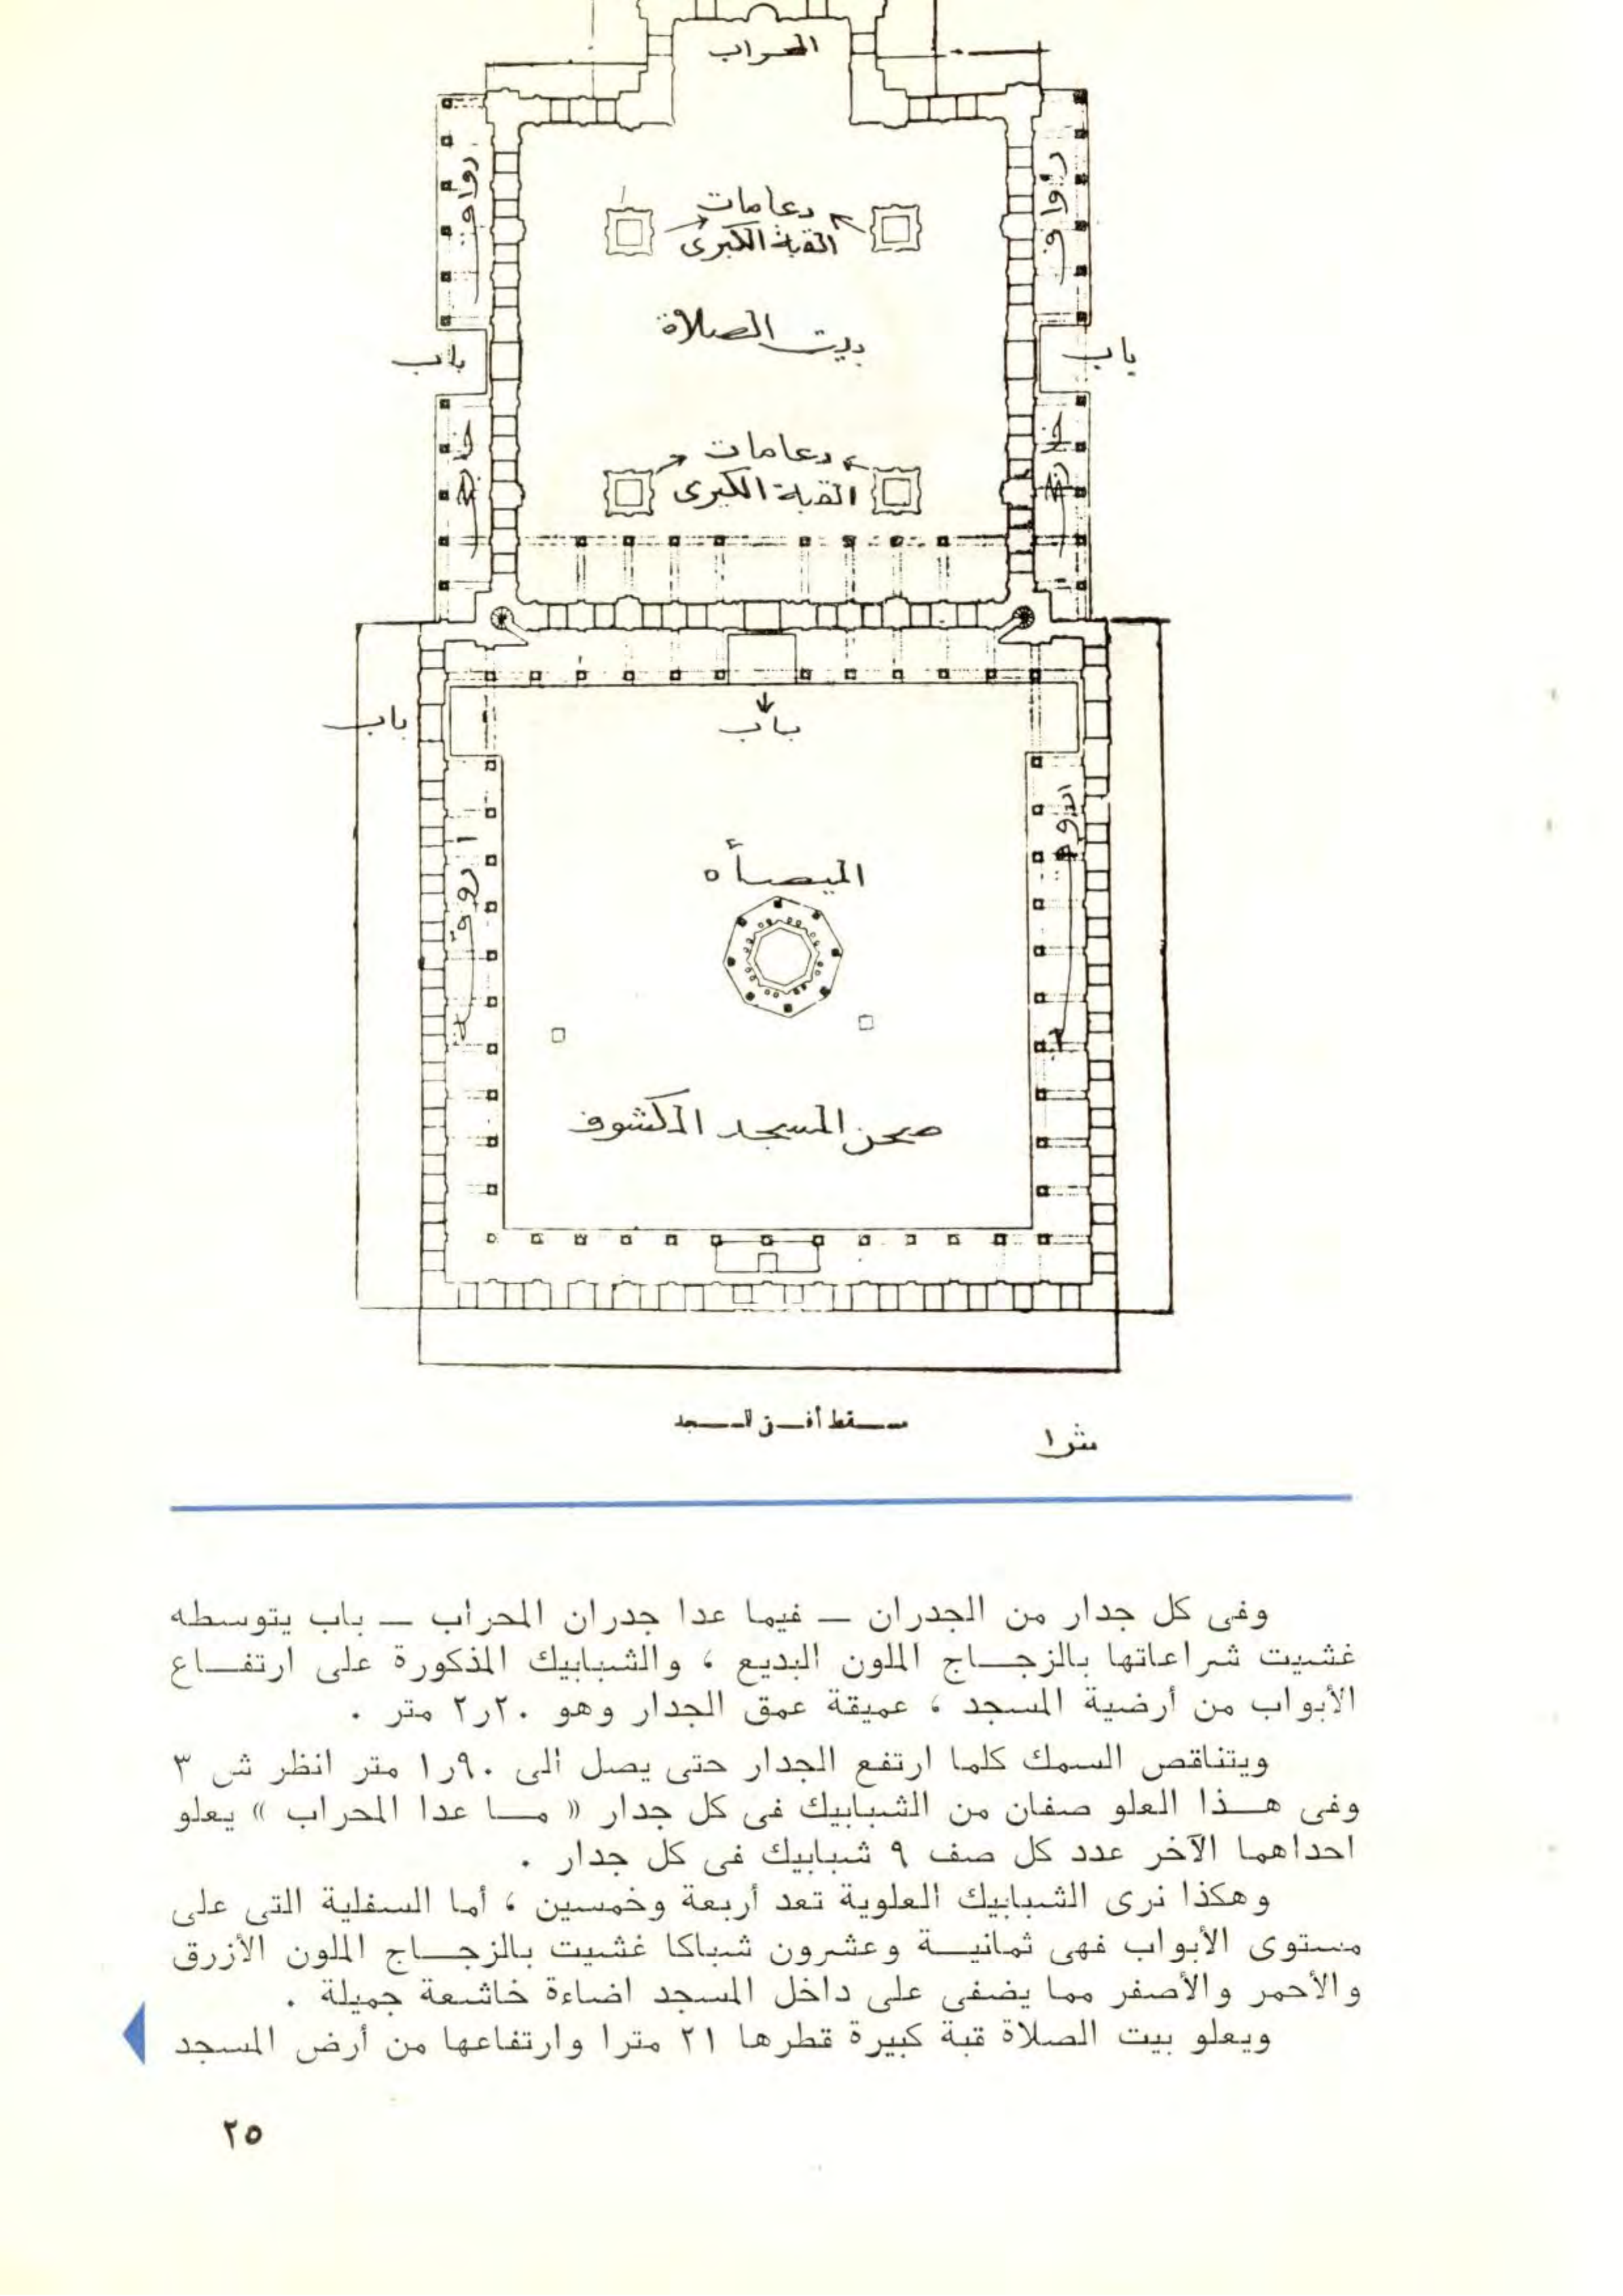 المحراب
رواق
دعامات
رواق
القبة الكبرى
بيت الصلاة
باب
باب
دعامات
القبة الكبرى
باب
باب
الميضأه
صحن المسجد المكشوف
مسقط أفقى للمسجد
ش ١
وفى كل جدار من الجدران — فيما عدا جدران المحراب — باب يتوسطه
غشيت شراعاتها بالزجاج الملون البديع ، والشبابيك المذكورة على ارتفاع
الأبواب من أرضية المسجد ، عميقة عمق الجدار وهو ٢٫٢٠ متر .
ويتناقص السمك كلما ارتفع الجدار حتى يصل الى ١٫٩٠ متر انظر ش ٣
وفى هذا العلو صفان من الشبابيك فى كل جدار « ما عدا المحراب » يعلو
احداهما الآخر عدد كل صف ٩ شبابيك فى كل جدار .
وهكذا نرى الشبابيك العلوية تعد أربعة وخمسين ، أما السفلية التى على
مستوى الأبواب فهى ثمانية وعشرون شباكا غشيت بالزجاج الملون الأزرق
والأحمر والأصفر مما يضفى على داخل المسجد اضاءة خاشعة جميلة .
ويعلو بيت الصلاة قبة كبيرة قطرها ٢١ مترا وارتفاعها من أرض المسجد
٢٥